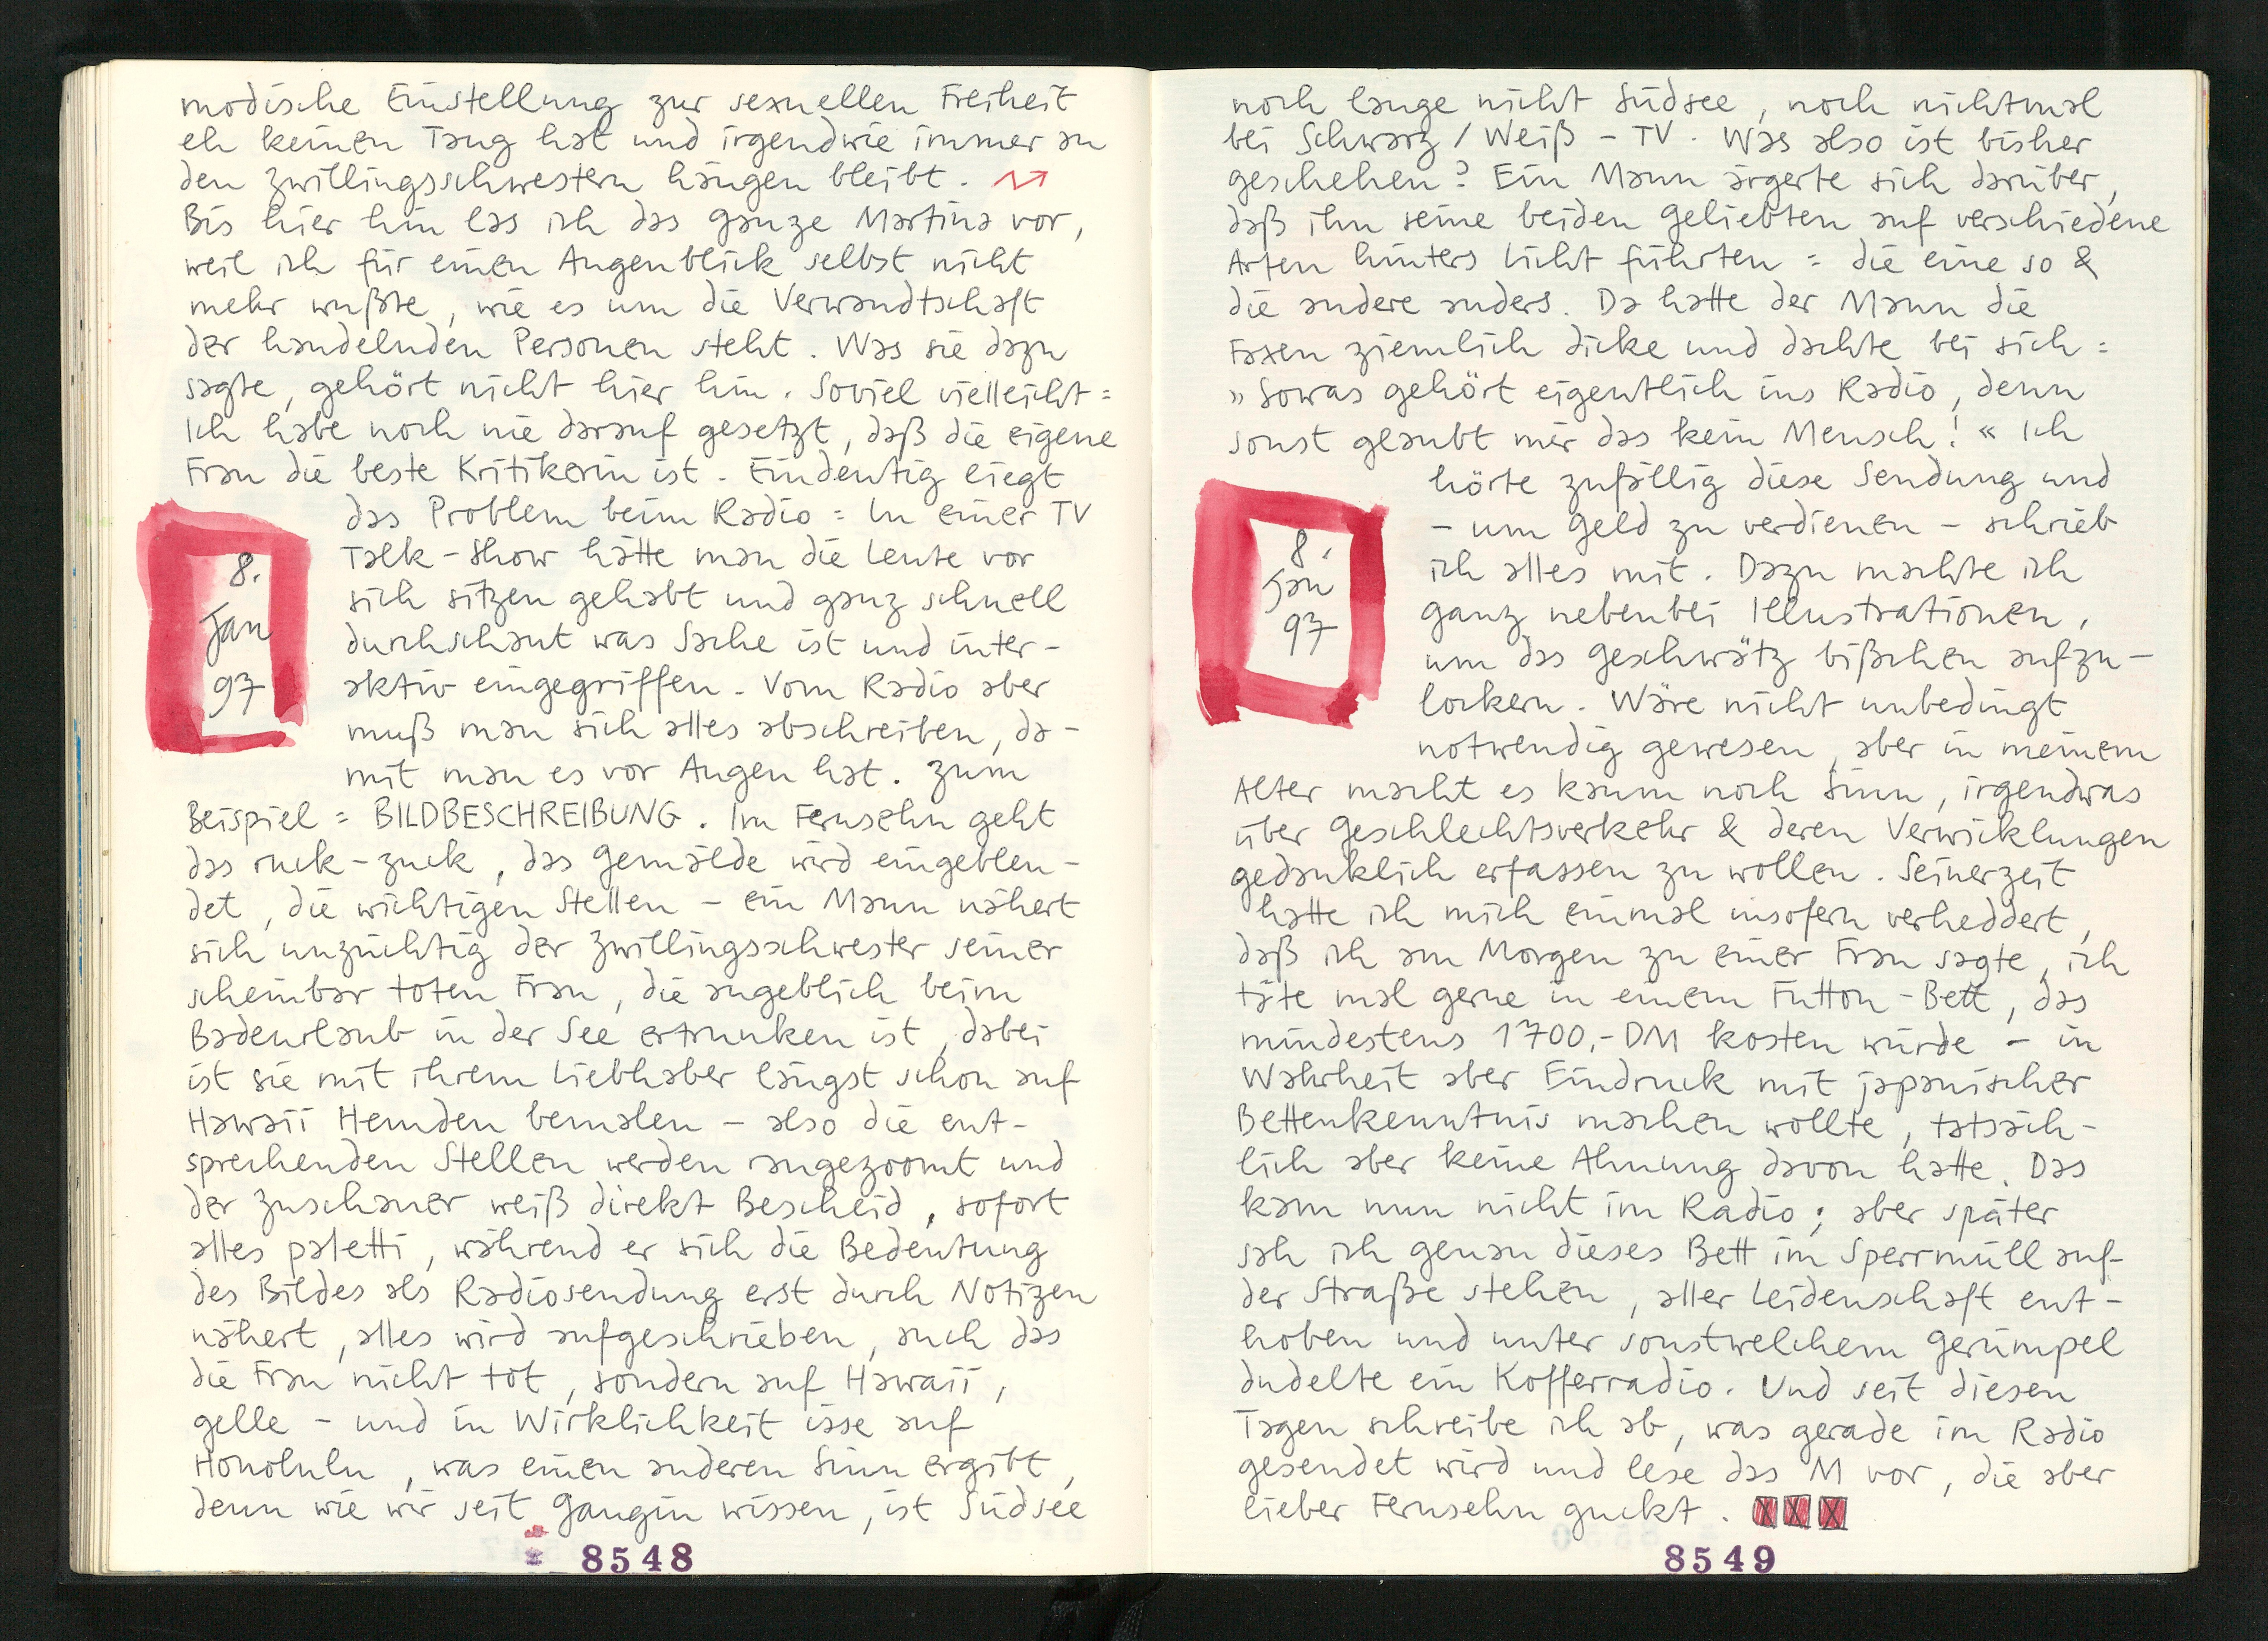 modische Einstellung zur sexuellen Freiheit
eh keinen Taug hat und irgendwie immer an
den Zwillingsschwestern hängen bleibt.
Bis hier hin las ich das ganze Martina vor,
weil ich für einen Augenblick selbst nicht
mehr wußte, wie es um die Verwandtschaft
der handelnden Personen steht. Was sie dazu
sagte, gehört nicht hier hin. Soviel vielleicht =
Ich habe noch nie darauf gesetzt, daß die eigene
Frau die beste Kritikerin ist. Eindeutig liegt
das Problem beim Radio = In einer TV
Talk-Show hätte man die Leute vor
sich sitzen gehabt und ganz schnell
durchschaut was Sache ist und inter-
aktiv eingegriffen. Vom Radio aber
muß man sich alles abschreiben, da-
mit man es vor Augen hat. Zum
8.
Jan
97
Beispiel = BILDBESCHREIBUNG. Im Fernsehn geht
das ruck-zuck, das Gemälde wird eingeblen-
det, die wichtigen Stellen – ein Mann nähert
sich unzüchtig der Zwillingsschwester seiner
scheinbar toten Frau, die angeblich beim
Badeurlaub in der See ertrunken ist, dabei
ist sie mit ihrem Liebhaber längst schon auf
Hawaii Hemden bemalen – also die ent-
sprechenden Stellen werden rangezoomt und
der Zuschauer weiß direkt Bescheid, sofort
alles paletti, während er sich die Bedeutung
des Bildes als Radiosendung erst durch Notizen
nähert, alles wird aufgeschrieben, auch das
die Frau nicht tot, sondern auf Hawaii,
gelle – und in Wirklichkeit isse auf
Honolulu, was einen anderen Sinn ergibt,
denn wie wir seit Gaugin wissen, ist Südsee
8548
noch lange nicht Südsee, noch nichtmal
bei Schwarz/Weiß – TV. Was also ist bisher
geschehen? Ein Mann ärgerte sich darüber,
daß ihn seine beiden Geliebten auf verschiedene
Arten hinters Licht führten = die eine so &
die andere anders. Da hatte der Mann die
Faxen ziemlich dicke und dachte bei sich =
»Sowas gehört eigentlich ins Radio, denn
sonst glaubt mir das kein Mensch!« Ich
hörte zufällig diese Sendung und
– um Geld zu verdienen – schrieb
ich alles mit. Dazu machte ich
ganz nebenbei Illustrationen,
um das Geschwätz bißchen aufzu-
lockern. Wäre nicht unbedingt
notwendig gewesen, aber in meinem
8.
Jan
97
Alter macht es kaum noch Sinn, irgendwas
über Geschlechtsverkehr & deren Verwicklungen
gedanklich erfassen zu wollen. Seinerzeit
hatte ich mich einmal insofern verheddert,
daß ich am Morgen zu einer Frau sagte, ich
täte mal gerne in einem Futton-Bett, das
mindestens 1700,- DM kosten würde – in
Wahrheit aber Eindruck mit japanischer
Bettenkenntnis machen wollte, tatsäch-
lich aber keine Ahnung davon hatte. Das
kam nun nicht im Radio; aber später
sah ich genau dieses Bett im Sperrmüll auf
der Straße stehen, aller Leidenschaft ent-
hoben und unter sonstwelchem Gerümpel
dudelte ein Kofferradio. Und seit diesen
Tagen schreibe ich ab, was gerade im Radio
gesendet wird und lese das M vor, die aber
lieber Fernsehn guckt. XXX
8549